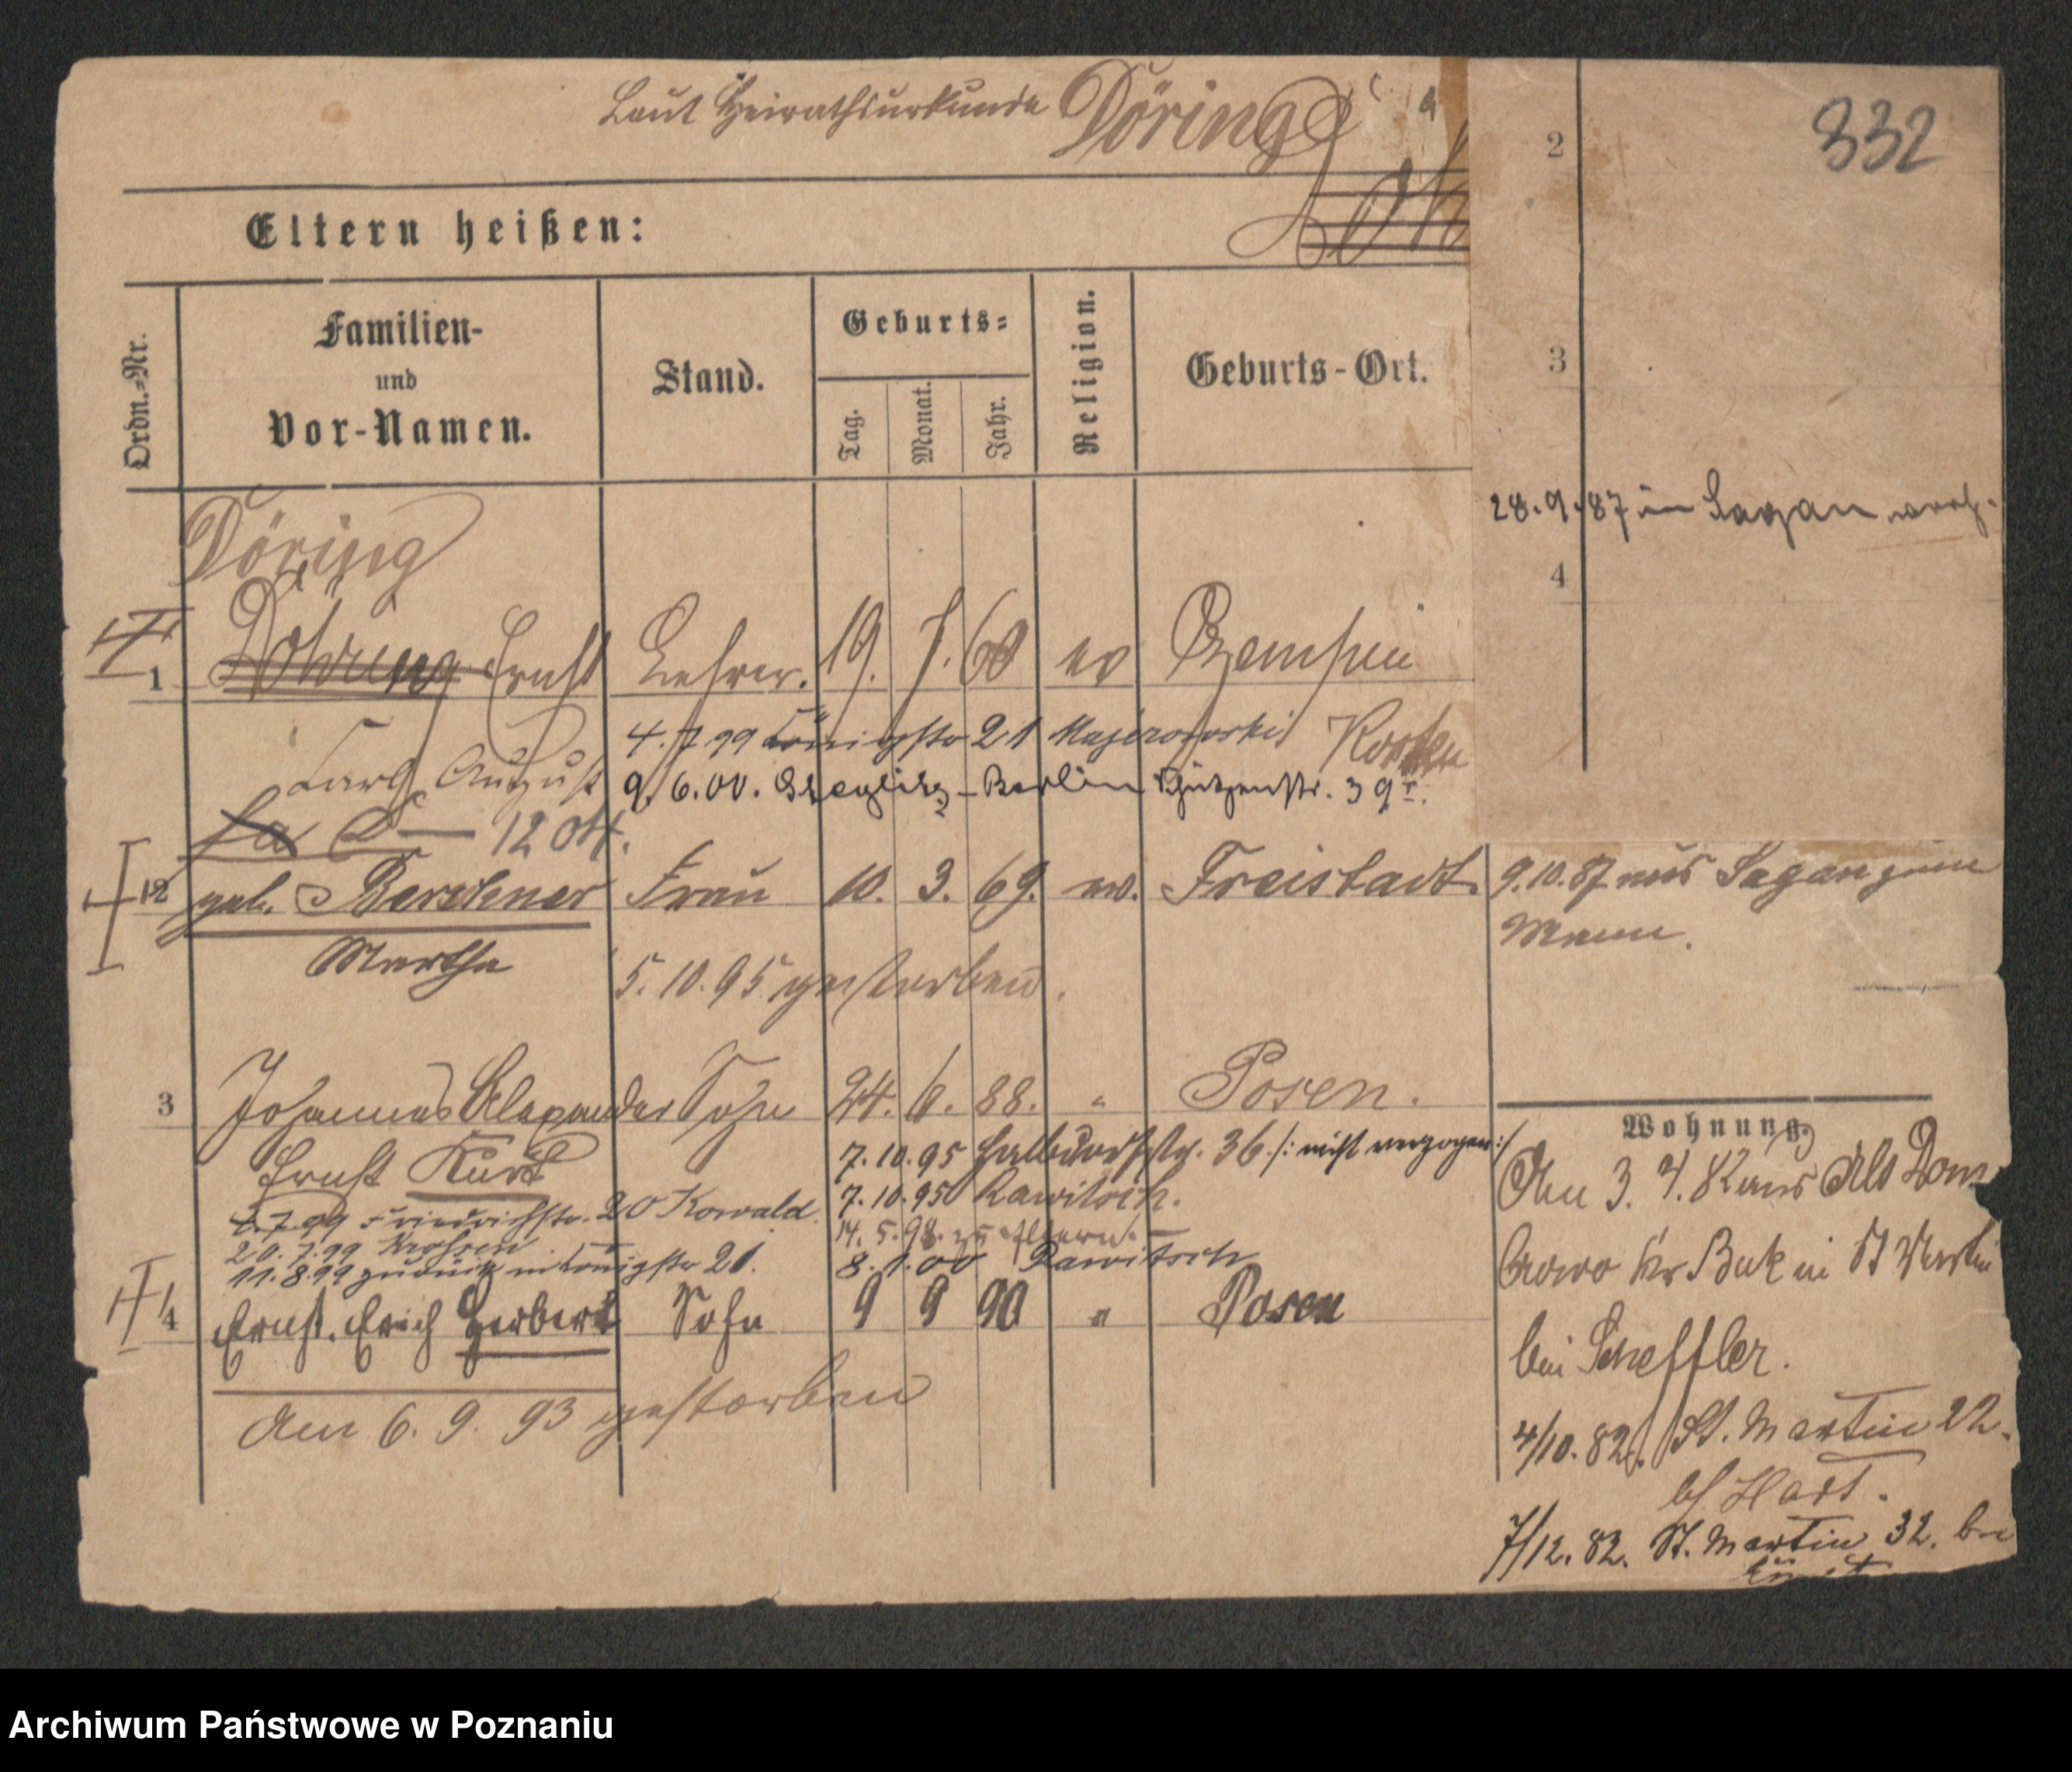 Laut Heirathsurkunde Döring
332
Eltern heißen:
Ordn.-Nr.
Familien-
und
Vor-Namen.
Stand.
Geburts-
Tag.
Monat.
Jahr.
Religion.
Geburts-Ort.
2
3
28.9.87 in Sagan verh.
4
Döring
1 Döhring Ernst Lehrer. 19. 7. 60 ev Czempin
Kosten
Carl August
4.7.99 Königstr 21 Majerowski
9.6.00. Steglitz-Berlin Schützenstr. 39
12 Okt.
2 geb. Berschner Frau 10. 3. 69. ev. Freistadt
Martha
9.10.87 aus Sagan zum
Mann.
5.10.95 gestorben.
3 Johannes Alexander Sohn 24. 6. 88. " Posen.
Ernst Kurt
7.10.95 Halbdorfstr. 36 /: nicht verzogen :/
7.10.95 Rawitsch.
4.7.99 Friedrichstr. 20 Kowald.
14.5.98. zu Eltern.
20.7.99 Krossen
11.8.99 zurück in Königstr 21.
8.1.00 Rawitsch
4 Ernst. Erich Herbert Sohn 9 9 90 " Posen
Am 6. 9. 93 gestorben
Wohnung.
Am 3. 4. 82 aus Alt Dom
browo Kr Buk in St Martin
bei Scheffler.
4/10. 82. St. Martin 22.
bei Hart.
7/12. 82. St. Martin 32. bei
Archiwum Państwowe w Poznaniu